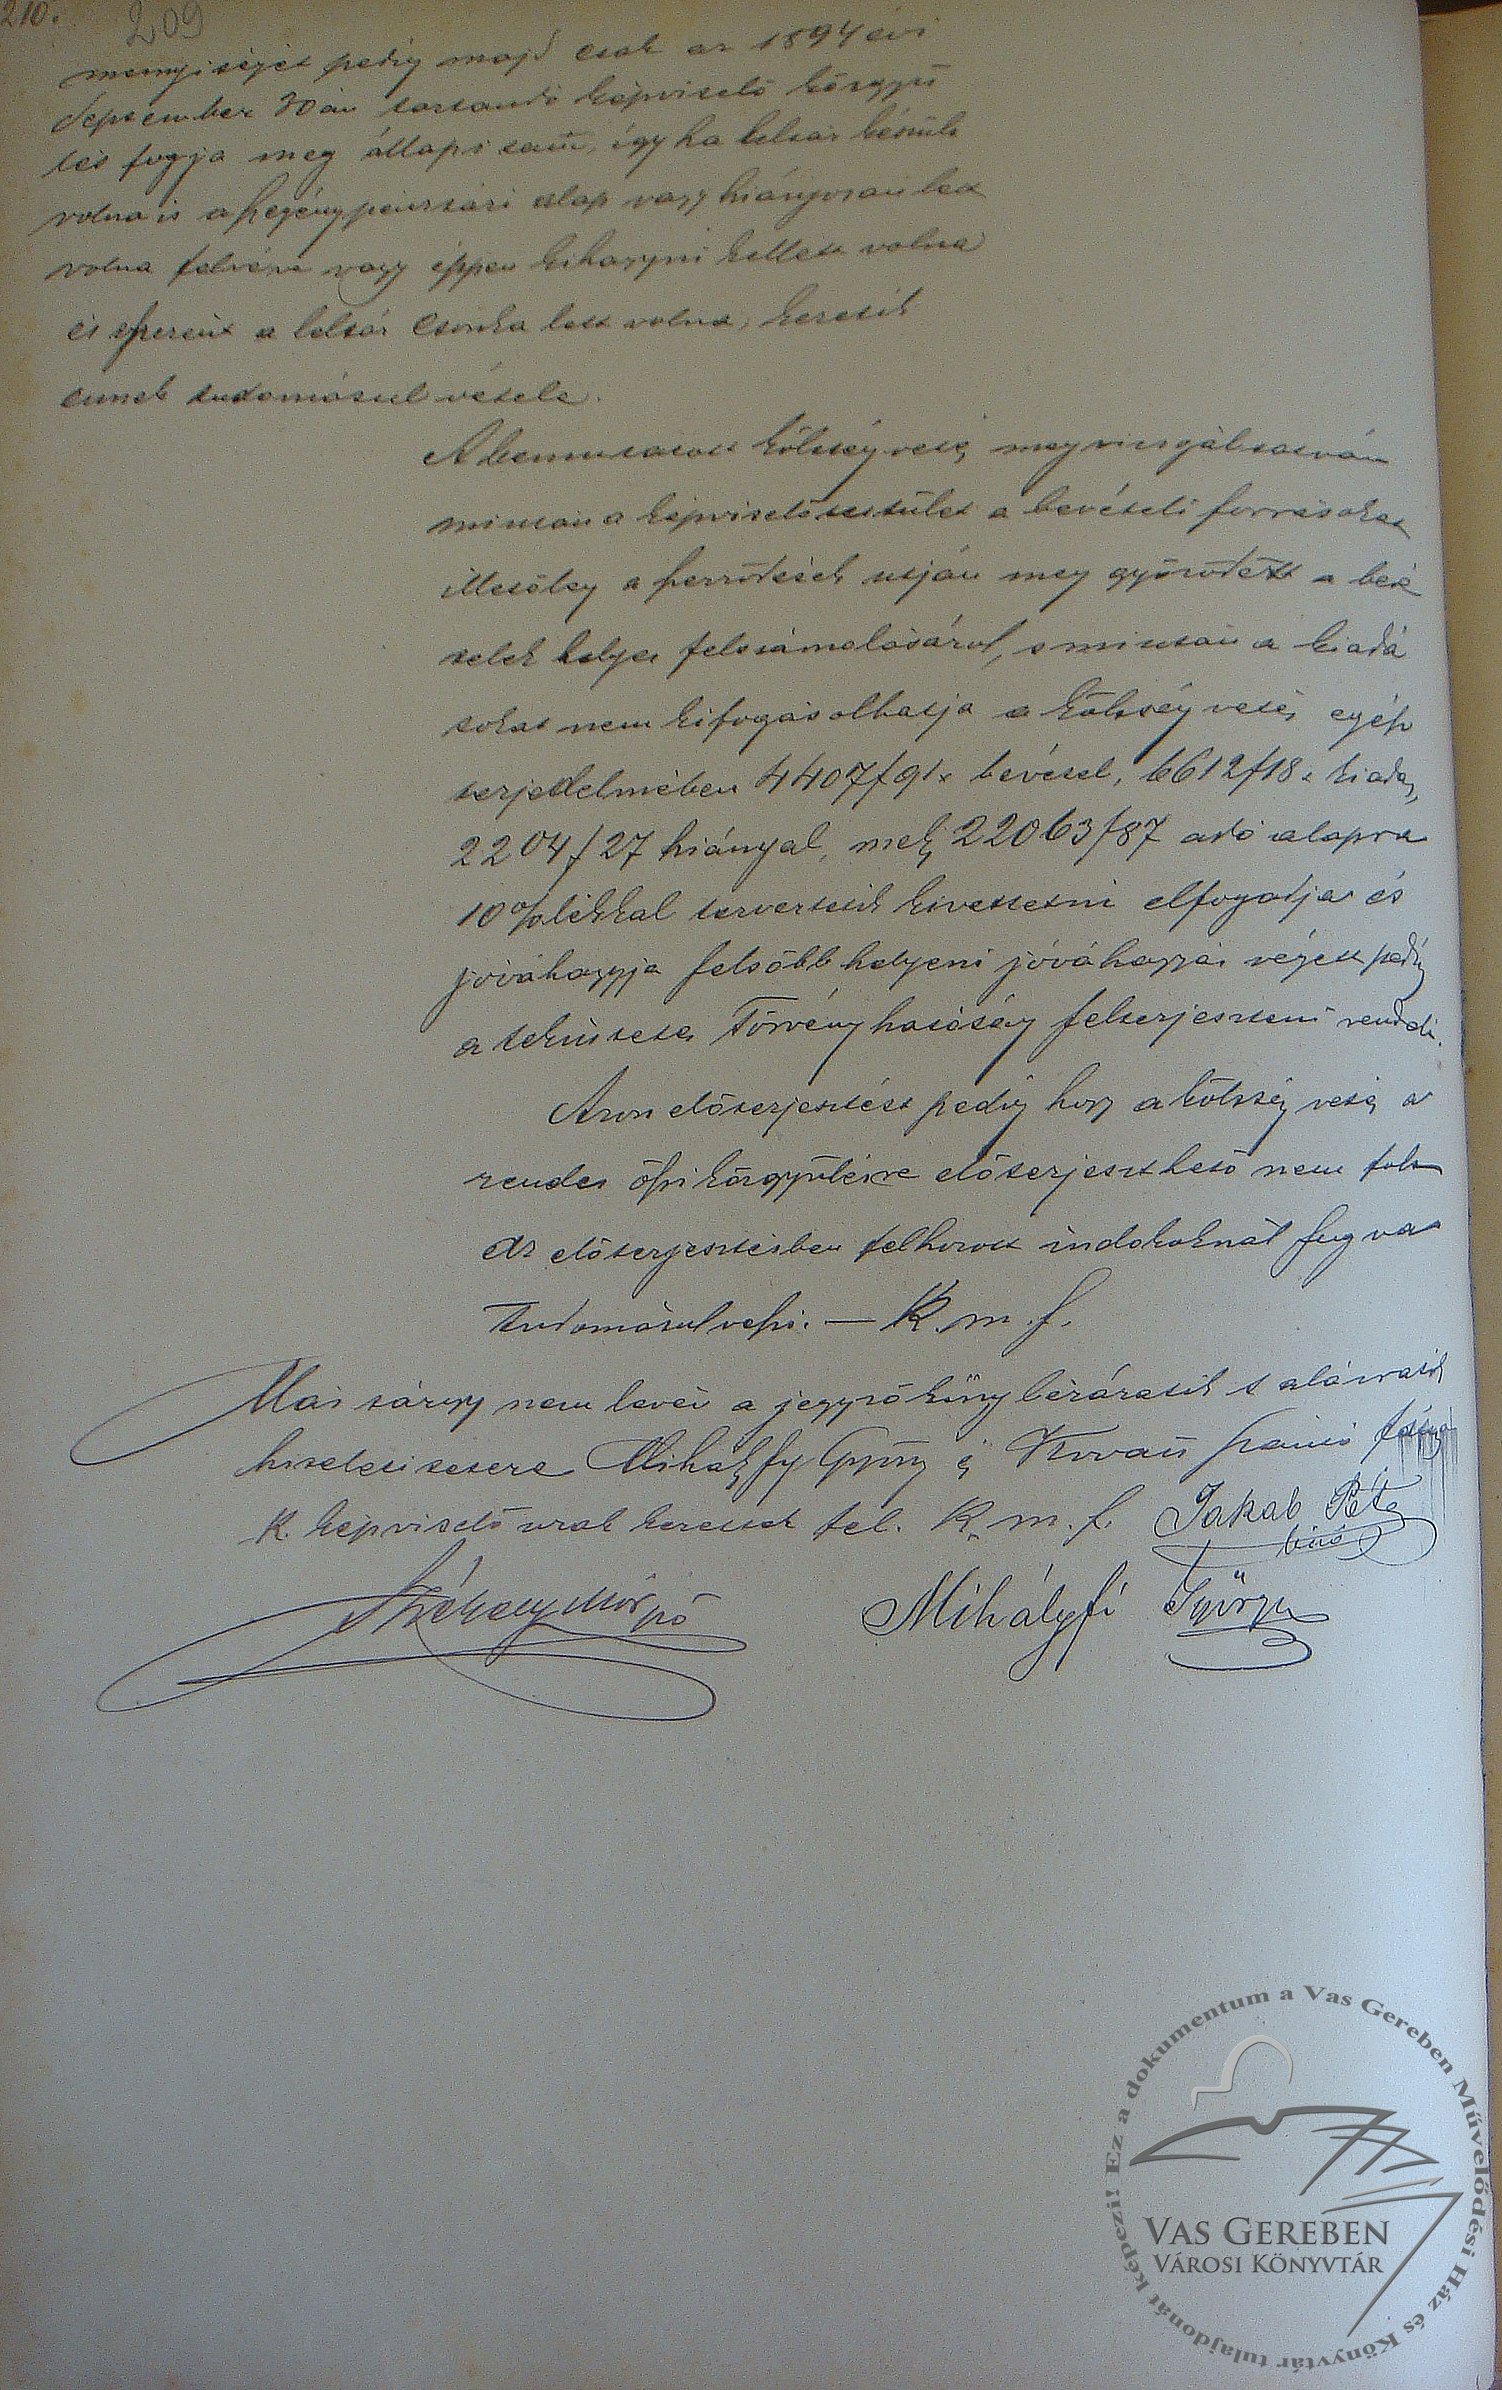 210.
209
mennyiségét pedig majd csak az 1894 évi
September 30án tartandó képviselő közgyű
lés fogja meg állapítani, így ha leltár készült
volna is a szegénypénztári alap vagy hiányosan lett
volna felvéve vagy éppen kihagyni kellett volna
és szerint a leltár csonka lett volna, kéretik
ennek tudomásul vétele.
A bemutatott költségvetés megvizsgáltatván
miután a képviselőtestület a bevételi forrásokat
illetőleg a szerződések utján meg győződött a bevé
telek helyes felszámolásáról, s miután a kiadá
sokat nem kifogásolhatja a költségvetés egész
terjedelmében 4407 f 91 x bevétel, 6612 f 18 x kiadás,
2204 f 27 hiányal, mely 22063 f 87 adó alapra
10%tólikkal terveztetik kivettetni elfogadja és
jóváhagyja felsőbb helyeni jóváhagyás végett pedig
a tekintetes Törvényhatóság felterjeszteni rendeli.
Azon előterjesztést pedig hogy a költség vetés a
rendes őszi közgyűlésre előterjeszthető nem volt
az előterjesztésben felhozott indokoknál fogva
Tudomásul veszi. — K. m. f.
Más tárgy nem lévén a jegyzőkönyv bezáratik s aláiratik
hitelesítésére Mihályfy György és Horváth
K. képviselő urak kérettek fel. K. m. f. Jakab Péter
biró
Mihályfi György
Ez a dokumentum a Vas Gereben Művelődési Ház és Könyvtár tulajdonát képezi!
VAS GEREBEN
VÁROSI KÖNYVTÁR